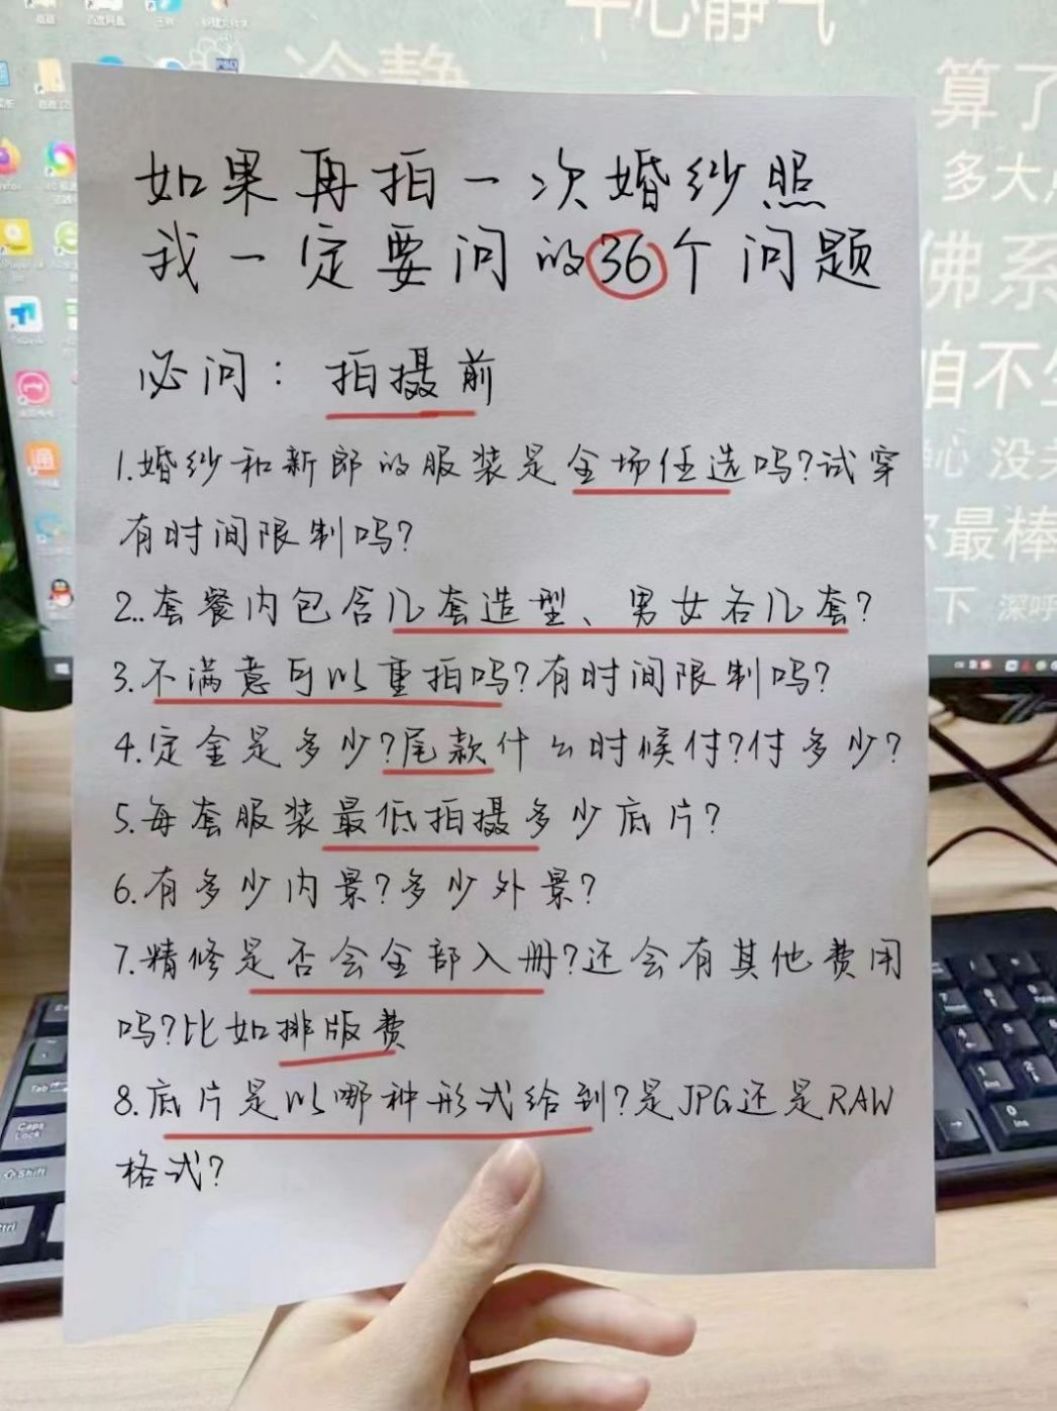 平心静气
冷静
算了
多大
佛系
咱不
心 没
最棒
下 深呼
如果再拍一次婚纱照
我一定要问的36个问题
必问：拍摄前
1.婚纱和新郎的服装是全场任选吗?试穿
有时间限制吗?
2..套餐内包含几套造型、男女各几套?
3.不满意可以重拍吗?有时间限制吗?
4.定金是多少?尾款什么时候付?付多少?
5.每套服装最低拍摄多少底片?
6.有多少内景?多少外景?
7.精修是否会全部入册?还会有其他费用
吗?比如排版费
8.底片是以哪种形式给到?是JPG还是RAW
格式?
Tab
Caps
Lock
Shift
Ctrl